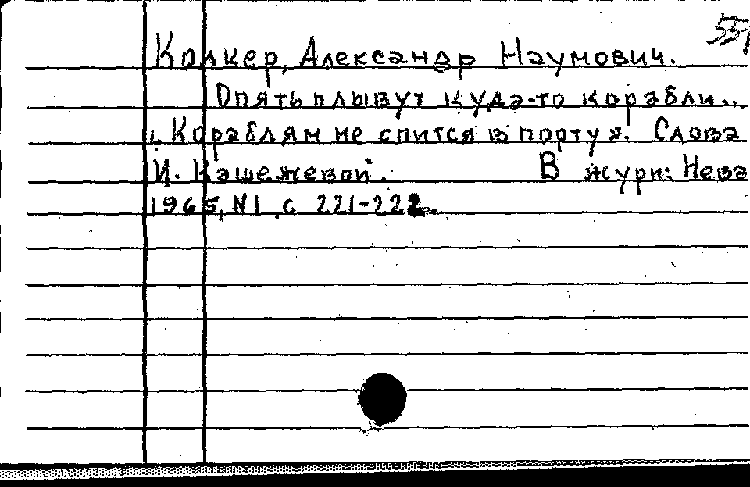 Колкер, Александр Наумович.
Опять плывут куда-то корабли...
"Кораблям не спится в порту". Слова
И. Кашежевой. В журн: Нева
1965, N1 с 221-222.